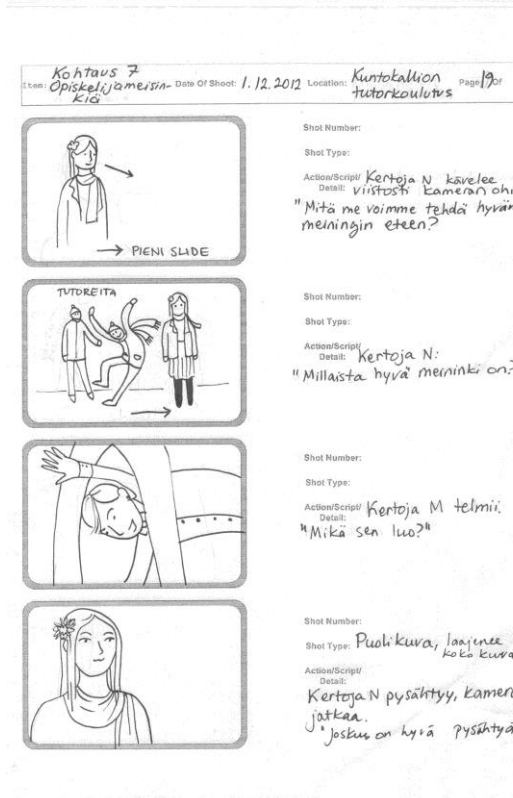 Item: Kohtaus 7 Date Of Shoot: 1.12.2012 Location: Kuntokallion Page 19 of
Opiskelijameisin-
kiä
tutorkoulutus
→ PIENI SLIDE
Shot Number:
Shot Type:
Action/Script/ Kertoja N kävelee
Detail: viistosti kameran ohi
"Mitä me voimme tehdä hyvän
meiningin eteen?
TUTOREITA
Shot Number:
Shot Type:
Action/Script/
Detail: Kertoja N:
"Millaista hyvä meininki on?
Shot Number:
Shot Type:
Action/Script/ Kertoja M telmii.
Detail:
"Mikä sen luo?"
Shot Number:
Shot Type: Puolikuva, laajenee
koko kuva
Action/Script/
Detail:
Kertoja N pysähtyy, kamera
jatkaa.
"Joskus on hyvä pysähtyä